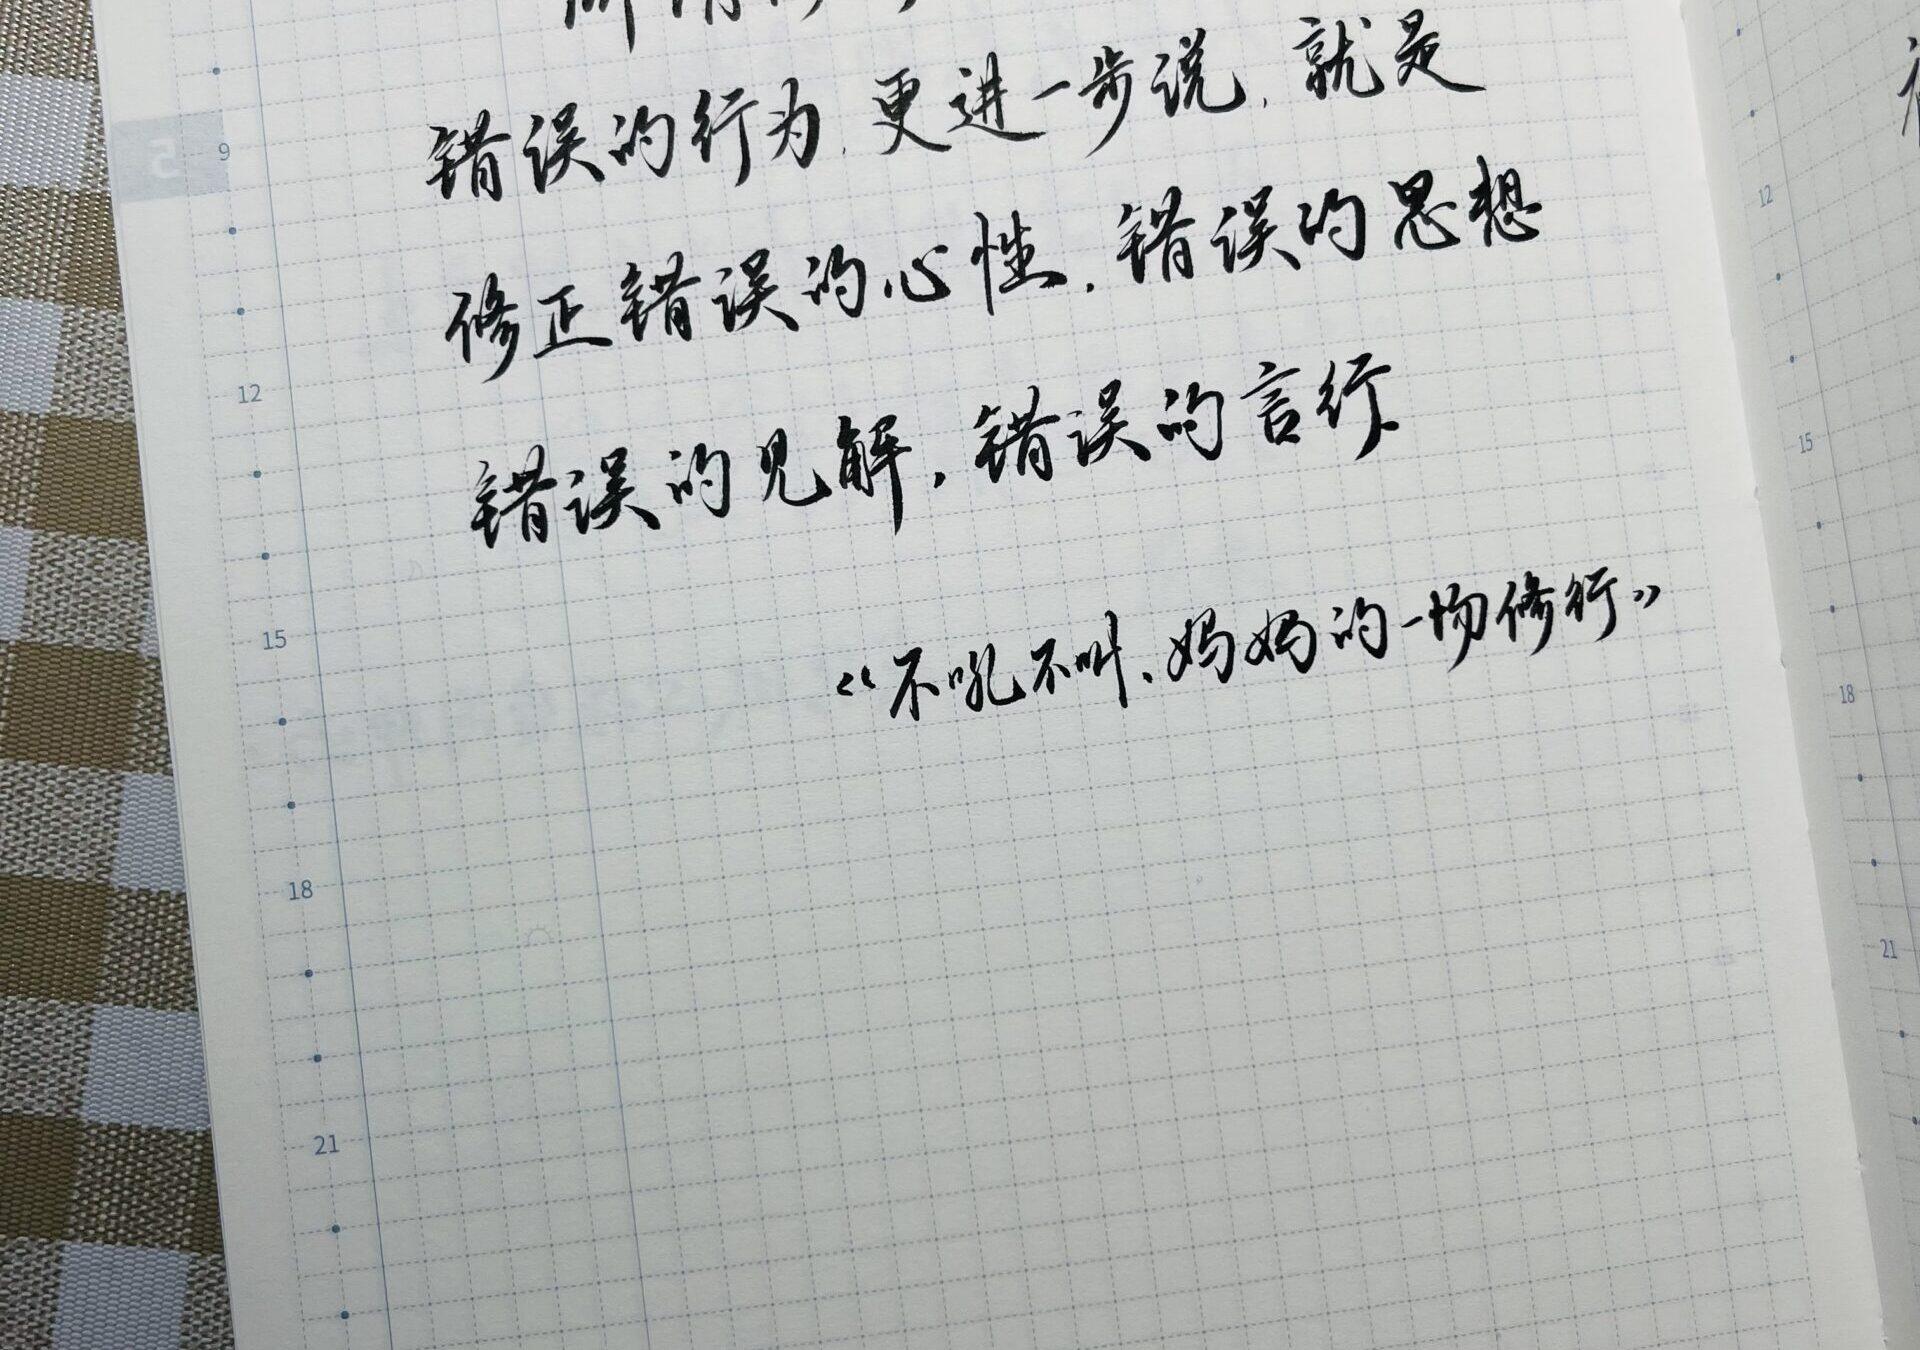 错误的行为,更进一步说,就是
修正错误的心性,错误的思想
错误的见解,错误的言行.
《不吼不叫、妈妈的一场修行》
5
9
12
15
18
21
12
15
18
21